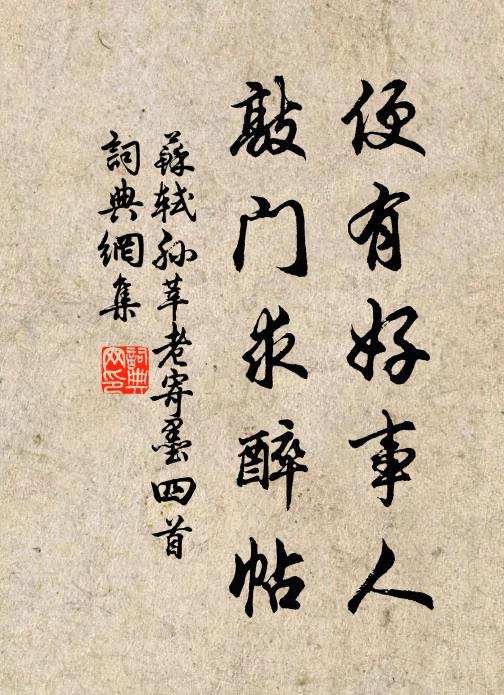 便有好事人
敲门求醉帖
蘇軾孙莘老寄墨四首
詞典網集
詞典网印